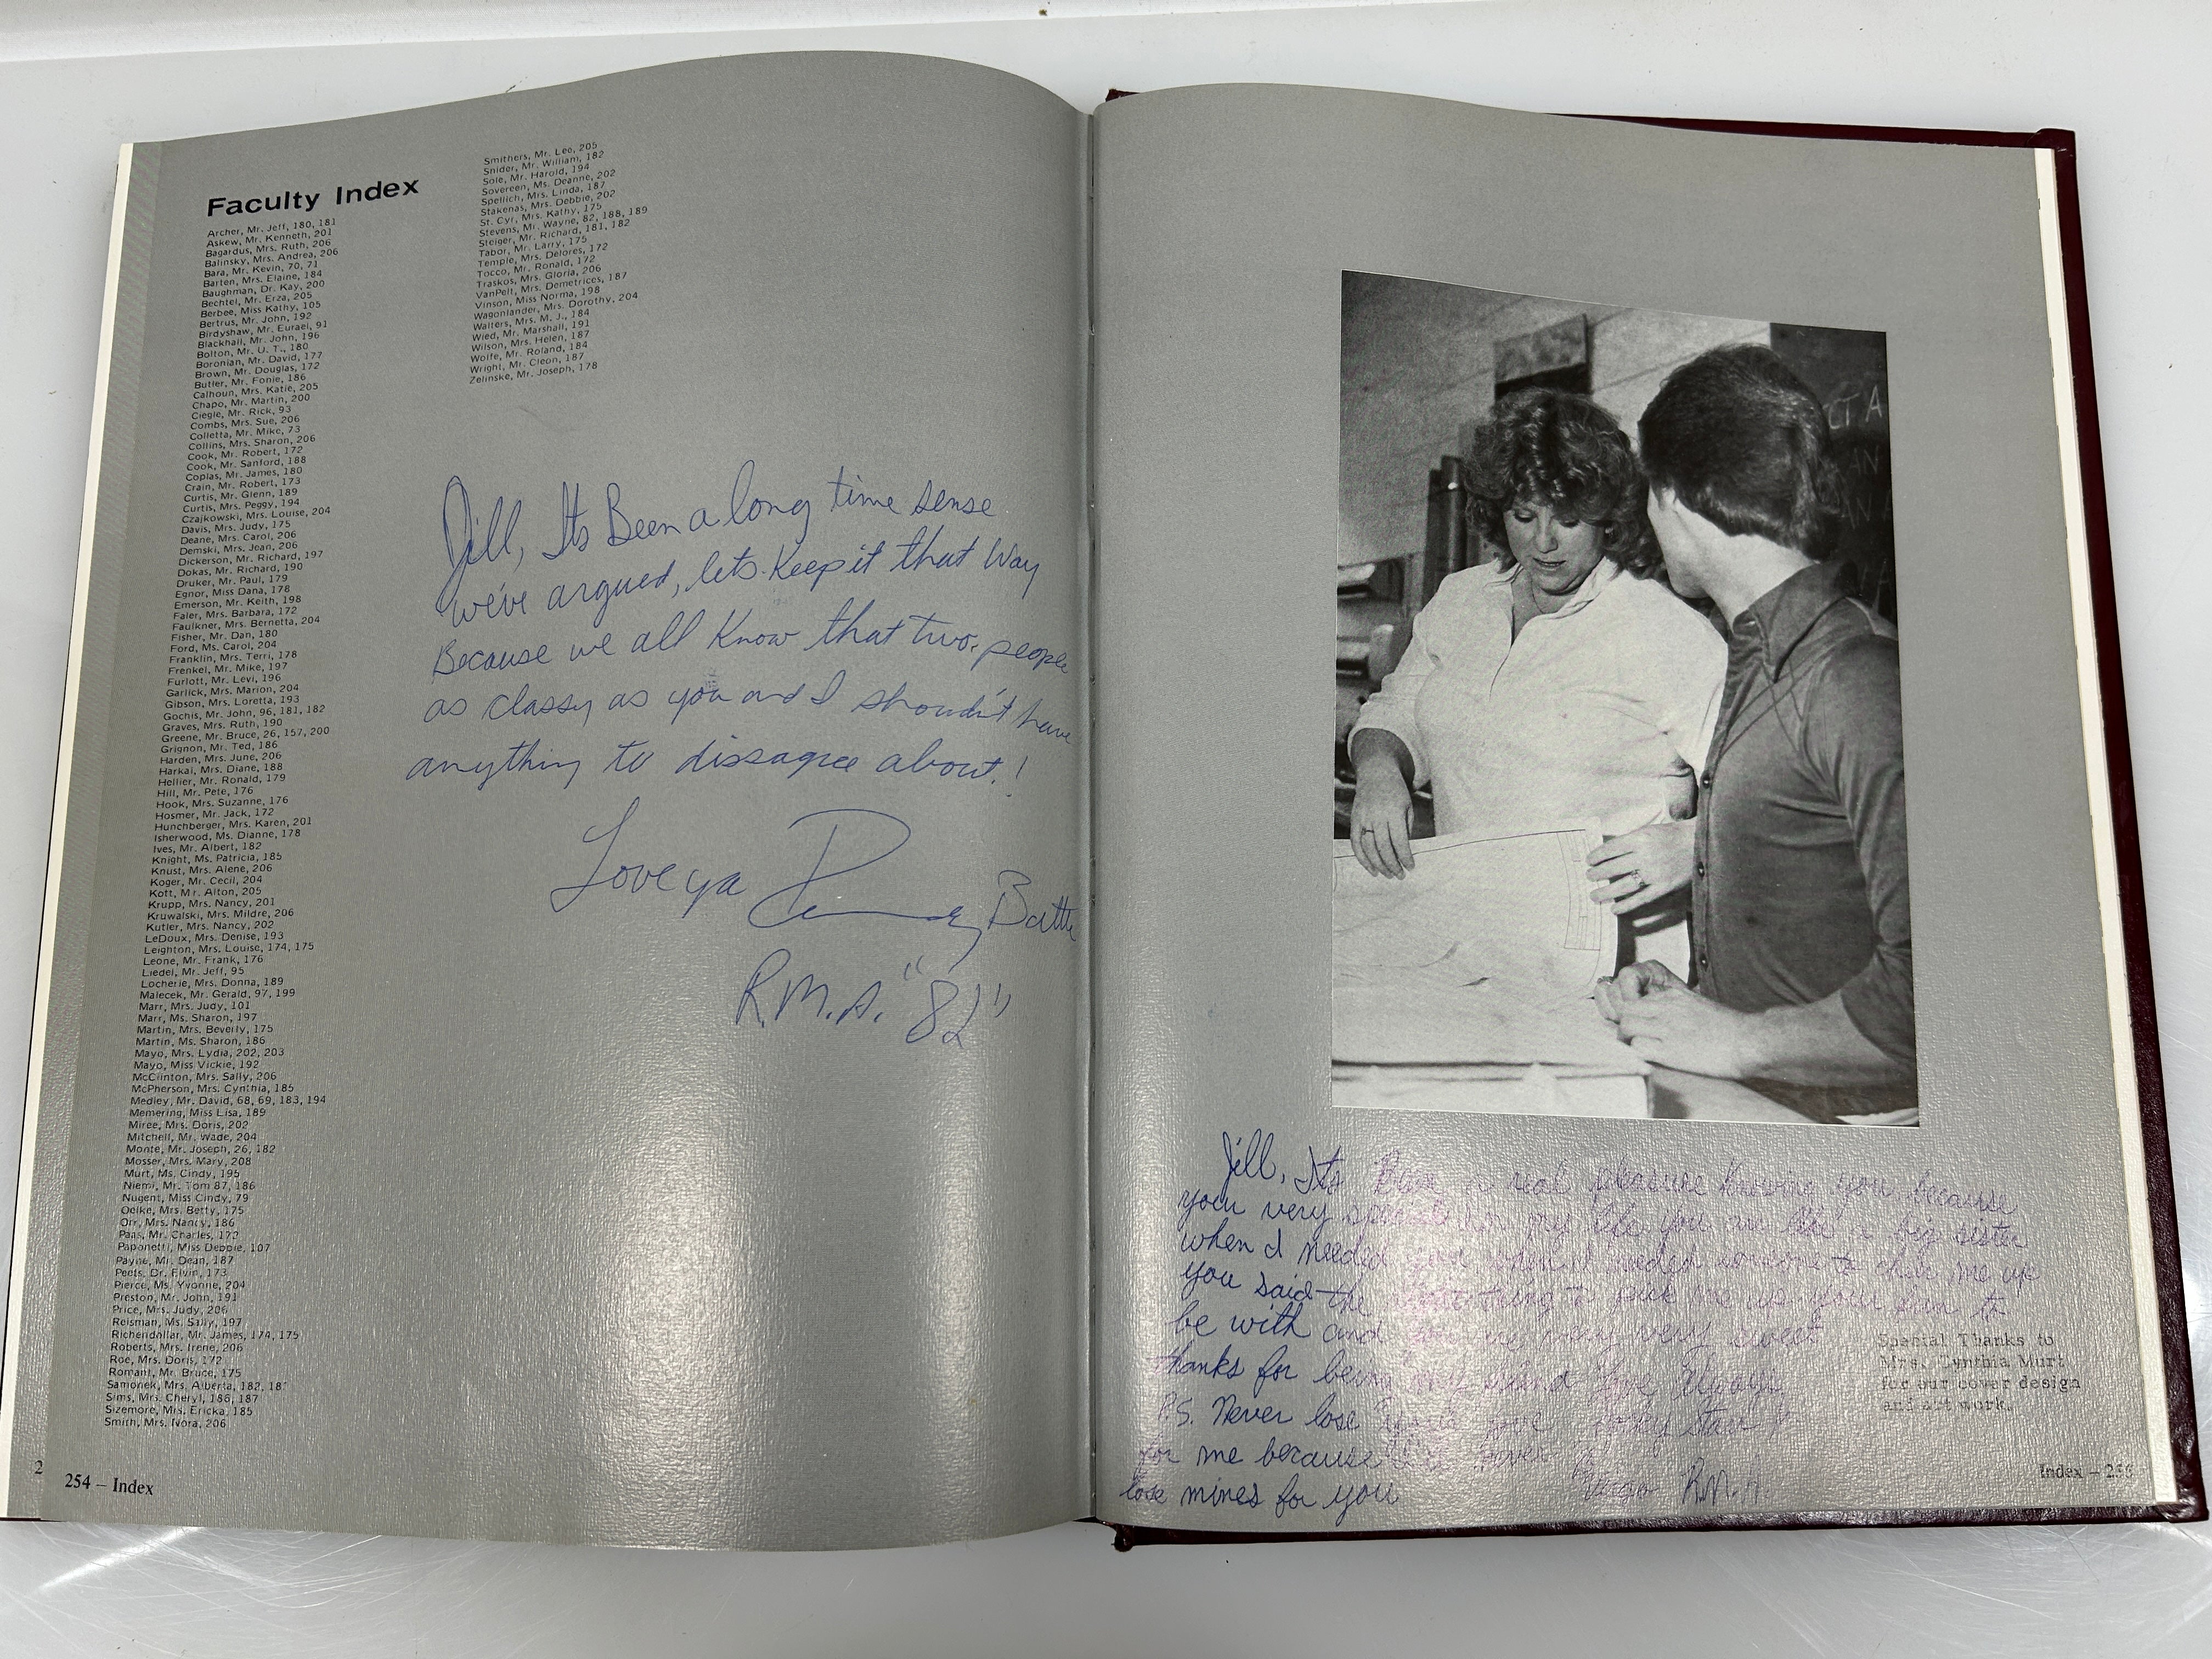 Faculty Index
Archer, Mr. Jeff, 180, 181
Askew, Mr. Kenneth, 201
Bagardus, Mrs. Ruth, 206
Balinsky, Mrs. Andrea, 206
Bara, Mr. Kevin, 70, 71
Barten, Mrs. Elaine, 184
Baughman, Dr. Kay, 200
Bechtel, Mr. Erza, 205
Berbee, Miss Kathy, 105
Bertrus, Mr. John, 192
Birdyshaw, Mr. Eurael, 91
Blackhall, Mr. John, 196
Bolton, Mr. U. T., 180
Boronian, Mr. David, 177
Brown, Mr. Douglas, 172
Butler, Mr. Fonie, 186
Calhoun, Mrs. Katie, 205
Chapo, Mr. Martin, 200
Ciegle, Mr. Rick, 93
Combs, Mrs. Sue, 206
Colletta, Mr. Mike, 73
Collins, Mrs. Sharon, 206
Cook, Mr. Robert, 172
Cook, Mr. Sanford, 188
Coplas, Mr. James, 180
Crain, Mr. Robert, 173
Curtis, Mr. Glenn, 189
Curtis, Mrs. Peggy, 194
Czajkowski, Mrs. Louise, 204
Davis, Mrs. Judy, 175
Deane, Mrs. Carol, 206
Demski, Mrs. Joan, 206
Dickerson, Mr. Richard, 197
Dokas, Mr. Richard, 190
Druker, Mr. Paul, 179
Egnor, Miss Dana, 178
Emerson, Mr. Keith, 198
Faler, Mrs. Barbara, 172
Faulkner, Mrs. Bernetta, 204
Fisher, Mr. Dan, 180
Ford, Ms. Carol, 204
Franklin, Mrs. Terri, 178
Frenkel, Mr. Mike, 197
Furlott, Mr. Levi, 196
Garlick, Mrs. Marion, 204
Gibson, Mrs. Loretta, 193
Gochis, Mr. John, 96, 181, 182
Graves, Mrs. Ruth, 190
Greene, Mr. Bruce, 26, 157, 200
Grignon, Mr. Ted, 186
Harden, Mrs. June, 206
Harkai, Mrs. Diane, 188
Hellier, Mr. Ronald, 179
Hill, Mr. Pete, 176
Hook, Mrs. Suzanne, 176
Hosmer, Mr. Jack, 172
Hunchberger, Mrs. Karen, 201
Isherwood, Ms. Dianne, 178
Ives, Mr. Albert, 182
Knight, Ms. Patricia, 185
Knust, Mrs. Alene, 206
Koger, Mr. Cecil, 204
Kott, Mr. Alton, 205
Krupp, Mrs. Nancy, 201
Kruwalski, Mrs. Mildre, 206
Kutler, Mrs. Nancy, 202
LeDoux, Mrs. Denise, 193
Leighton, Mrs. Louise, 174, 175
Leone, Mr. Frank, 176
Liedel, Mr. Jeff, 95
Locherie, Mrs. Donna, 189
Malecek, Mr. Gerald, 97, 199
Marr, Mrs. Judy, 101
Marr, Ms. Sharon, 197
Martin, Mrs. Beverly, 175
Martin, Ms. Sharon, 186
Mayo, Mrs. Lydia, 202, 203
Mayo, Miss Vickie, 192
McClinton, Mrs. Sally, 206
McPherson, Mrs. Cynthia, 185
Medley, Mr. David, 68, 69, 183, 194
Memering, Miss Lisa, 189
Miree, Mrs. Doris, 202
Mitchell, Mr. Wade, 204
Monte, Mr. Joseph, 26, 182
Mosser, Mrs. Mary, 208
Murt, Ms. Cindy, 195
Niemi, Mr. Tom 87, 186
Nugent, Miss Cindy, 79
Oelke, Mrs. Betty, 175
Orr, Mrs. Nancy, 186
Paas, Mr. Charles, 172
Paponetti, Miss Debbie, 107
Payne, Mr. Dean, 187
Peets, Dr. Elvin, 173
Pierce, Ms. Yvonne, 204
Preston, Mr. John, 191
Price, Mrs. Judy, 206
Reisman, Ms. Sally, 197
Richendollar, Mr. James, 174, 175
Roberts, Mrs. Irene, 206
Roe, Mrs. Doris, 172
Romant, Mr. Bruce, 175
Samonek, Mrs. Alberta, 182, 187
Sims, Mrs. Cheryl, 186, 187
Sizemore, Mrs. Ericka, 185
Smith, Mrs. Nora, 206
Smithers, Mr. Lee, 205
Snider, Mr. William, 182
Sole, Mr. Harold, 194
Sovereen, Ms. Deanne, 202
Spellich, Mrs. Linda, 187
Stakenas, Mrs. Debbie, 202
St. Cyr, Mrs. Kathy, 175
Stevens, Mr. Wayne, 82, 188, 189
Steiger, Mr. Richard, 181, 182
Tabor, Mr. Larry, 175
Temple, Mrs. Delores, 172
Tocco, Mr. Ronald, 172
Traskos, Mrs. Gloria, 206
VanPelt, Mrs. Demetrices, 187
Vinson, Miss Norma, 198
Wagonlander, Mrs. Dorothy, 204
Walters, Mrs. M. J., 184
Wied, Mr. Marshall, 191
Wilson, Mrs. Helen, 187
Wolfe, Mr. Roland, 184
Wright, Mr. Cleon, 187
Zelinske, Mr. Joseph, 178
Jill, Its Been a long time sense
we've argued, lets Keep it that Way
Because we all Know that two people
as classy as you and I should't have
anything to dissagree about!
Love ya Battle
R.M.A. "82"
2
254 – Index
CT A
AN
AN A
Jill, Its Been a real pleasure knowing you because
your very special in my life you are like a big sister
when I needed you when I needed someone to cheer me up
you said the thing to me your fun to
be with and very very sweet
thanks for being my friend Love Always
P.S. Never lose your love
for me because I'll never
lose mines for you
Virgo R.M.A.
Special Thanks to
Mrs. Cynthia Murt
for our cover design
and art work.
Index – 255